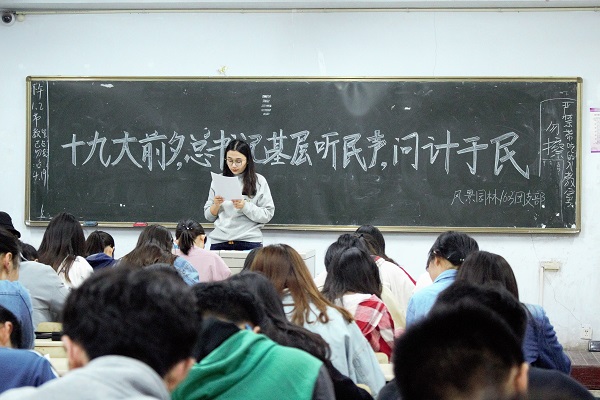 十九大前夕,总书记基层听民声,问计于民
风景园林163团支部
勿擦